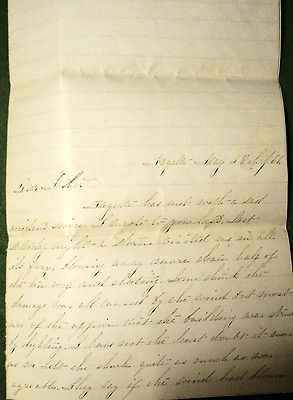 Fayette May 28th /64
Dear Sister
Fayette has met with a sad
accident since I wrote to you last. Last
night a storm visited us in all
its fury, blowing away more than half of
the tin roof and Some think the
damage was all caused by the wind but most
are of the opinion that the building was struck
by lightning. I have not the least doubt it was
as we felt the shock quite as much as was
agreeable. They say if the wind had blown